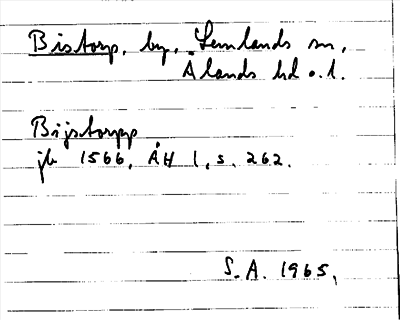 Bistorp, by, Lemlands sn,
Ålands hd o. l.
Bijstorpp
jb 1566, ÅH 1, s. 262.
S. A. 1965,